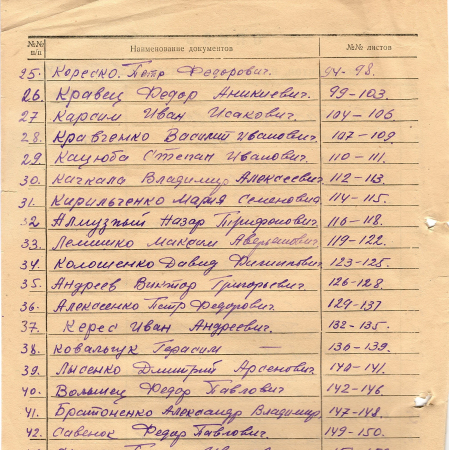 №№ п/п Наименование документов №№ листов
25. Кореско Петр Федорович. 94-98.
26. Кравец Федор Аникиевич. 99-103.
27 Карсим Иван Исакович. 104-106
28. Кравченко Василий Иванович. 107-109.
29. Кацюба Степан Иванович. 110-111.
30. Качкала Владимир Алексеевич 112-113.
31. Кирильченко Мария Семеновна 114-115.
32 Назар Трифонович 116-118.
33. Лемишко Максим 119-122.
34. Колошенко Давид Филиппович 123-125.
35. Андреев Виктор Григорьевич. 126-128.
36. Алексеенко Петр Федорович. 129-137
37. Керес Иван Андреевич. 132-135.
38. Ковальчук Герасим — 136-139.
39. Лысенко Дмитрий Арсенович. 140-141.
40. Волынец Федор Павлович 142-146.
41. Братоненко Александр Владимир 147-148.
42. Савенок Федор Павлович. 149-150.